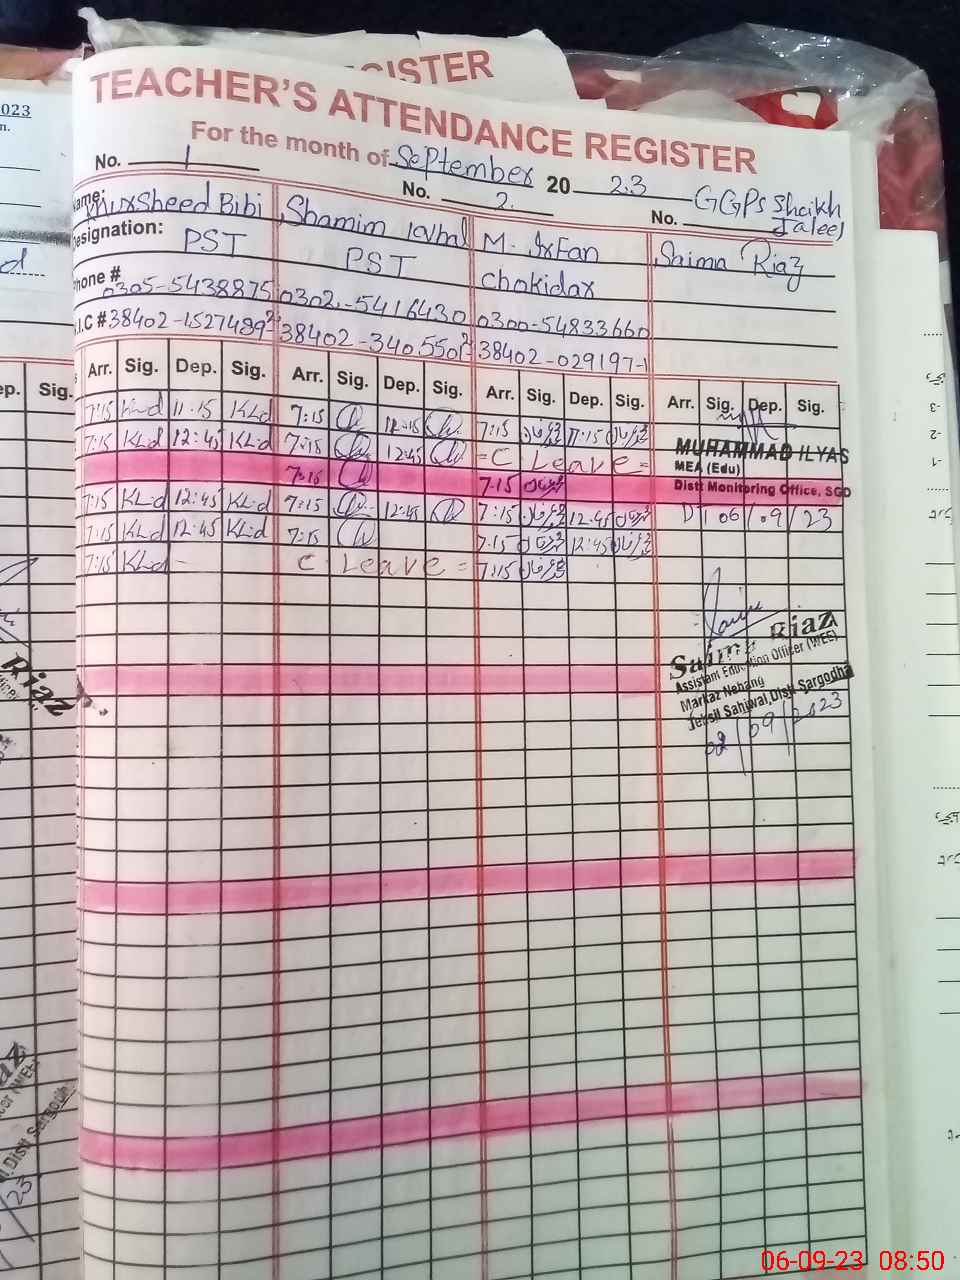 REGISTER
TEACHER'S ATTENDANCE REGISTER
For the month of September 20 23
No. 1 No. 2 No. GGPS Sheikh Jaleel
Name: Mursheed Bibi Shamim Iqbal M. Irfan Saima Riaz
Designation: PST PST Chokidar
Phone # 0305-5438875 0302-5416430 0300-54833660
I.C # 38402-1527489-2 38402-340550 38402-029197-1
Arr. Sig. Dep. Sig. Arr. Sig. Dep. Sig. Arr. Sig. Dep. Sig. Arr. Sig. Dep. Sig.
7:15 KLd 11:15 KLd 7:15 7:15 11:15
7:15 KLd 12:45 KLd 7:15 12:45 = C Leave =
7:15 7:15
7:15 KLd 12:45 KLd 7:15 12:45 7:15 12:45
7:15 KLd 12:45 KLd 7:15 7:15 12:45
7:15 KLd - C Leave = 7:15
MUHAMMAD ILYAS
MEA (Edu)
Distt Monitoring Office, SGD
DT 06/09/23
Saima Riaz
Assistant Education Officer (WEE)
Markaz Nehang
Tehsil Sahiwal, Distt Sargodha
02/09/2023
2023
ep. Sig.
Riaz
Distt Sargodha
23
06-09-23 08:50